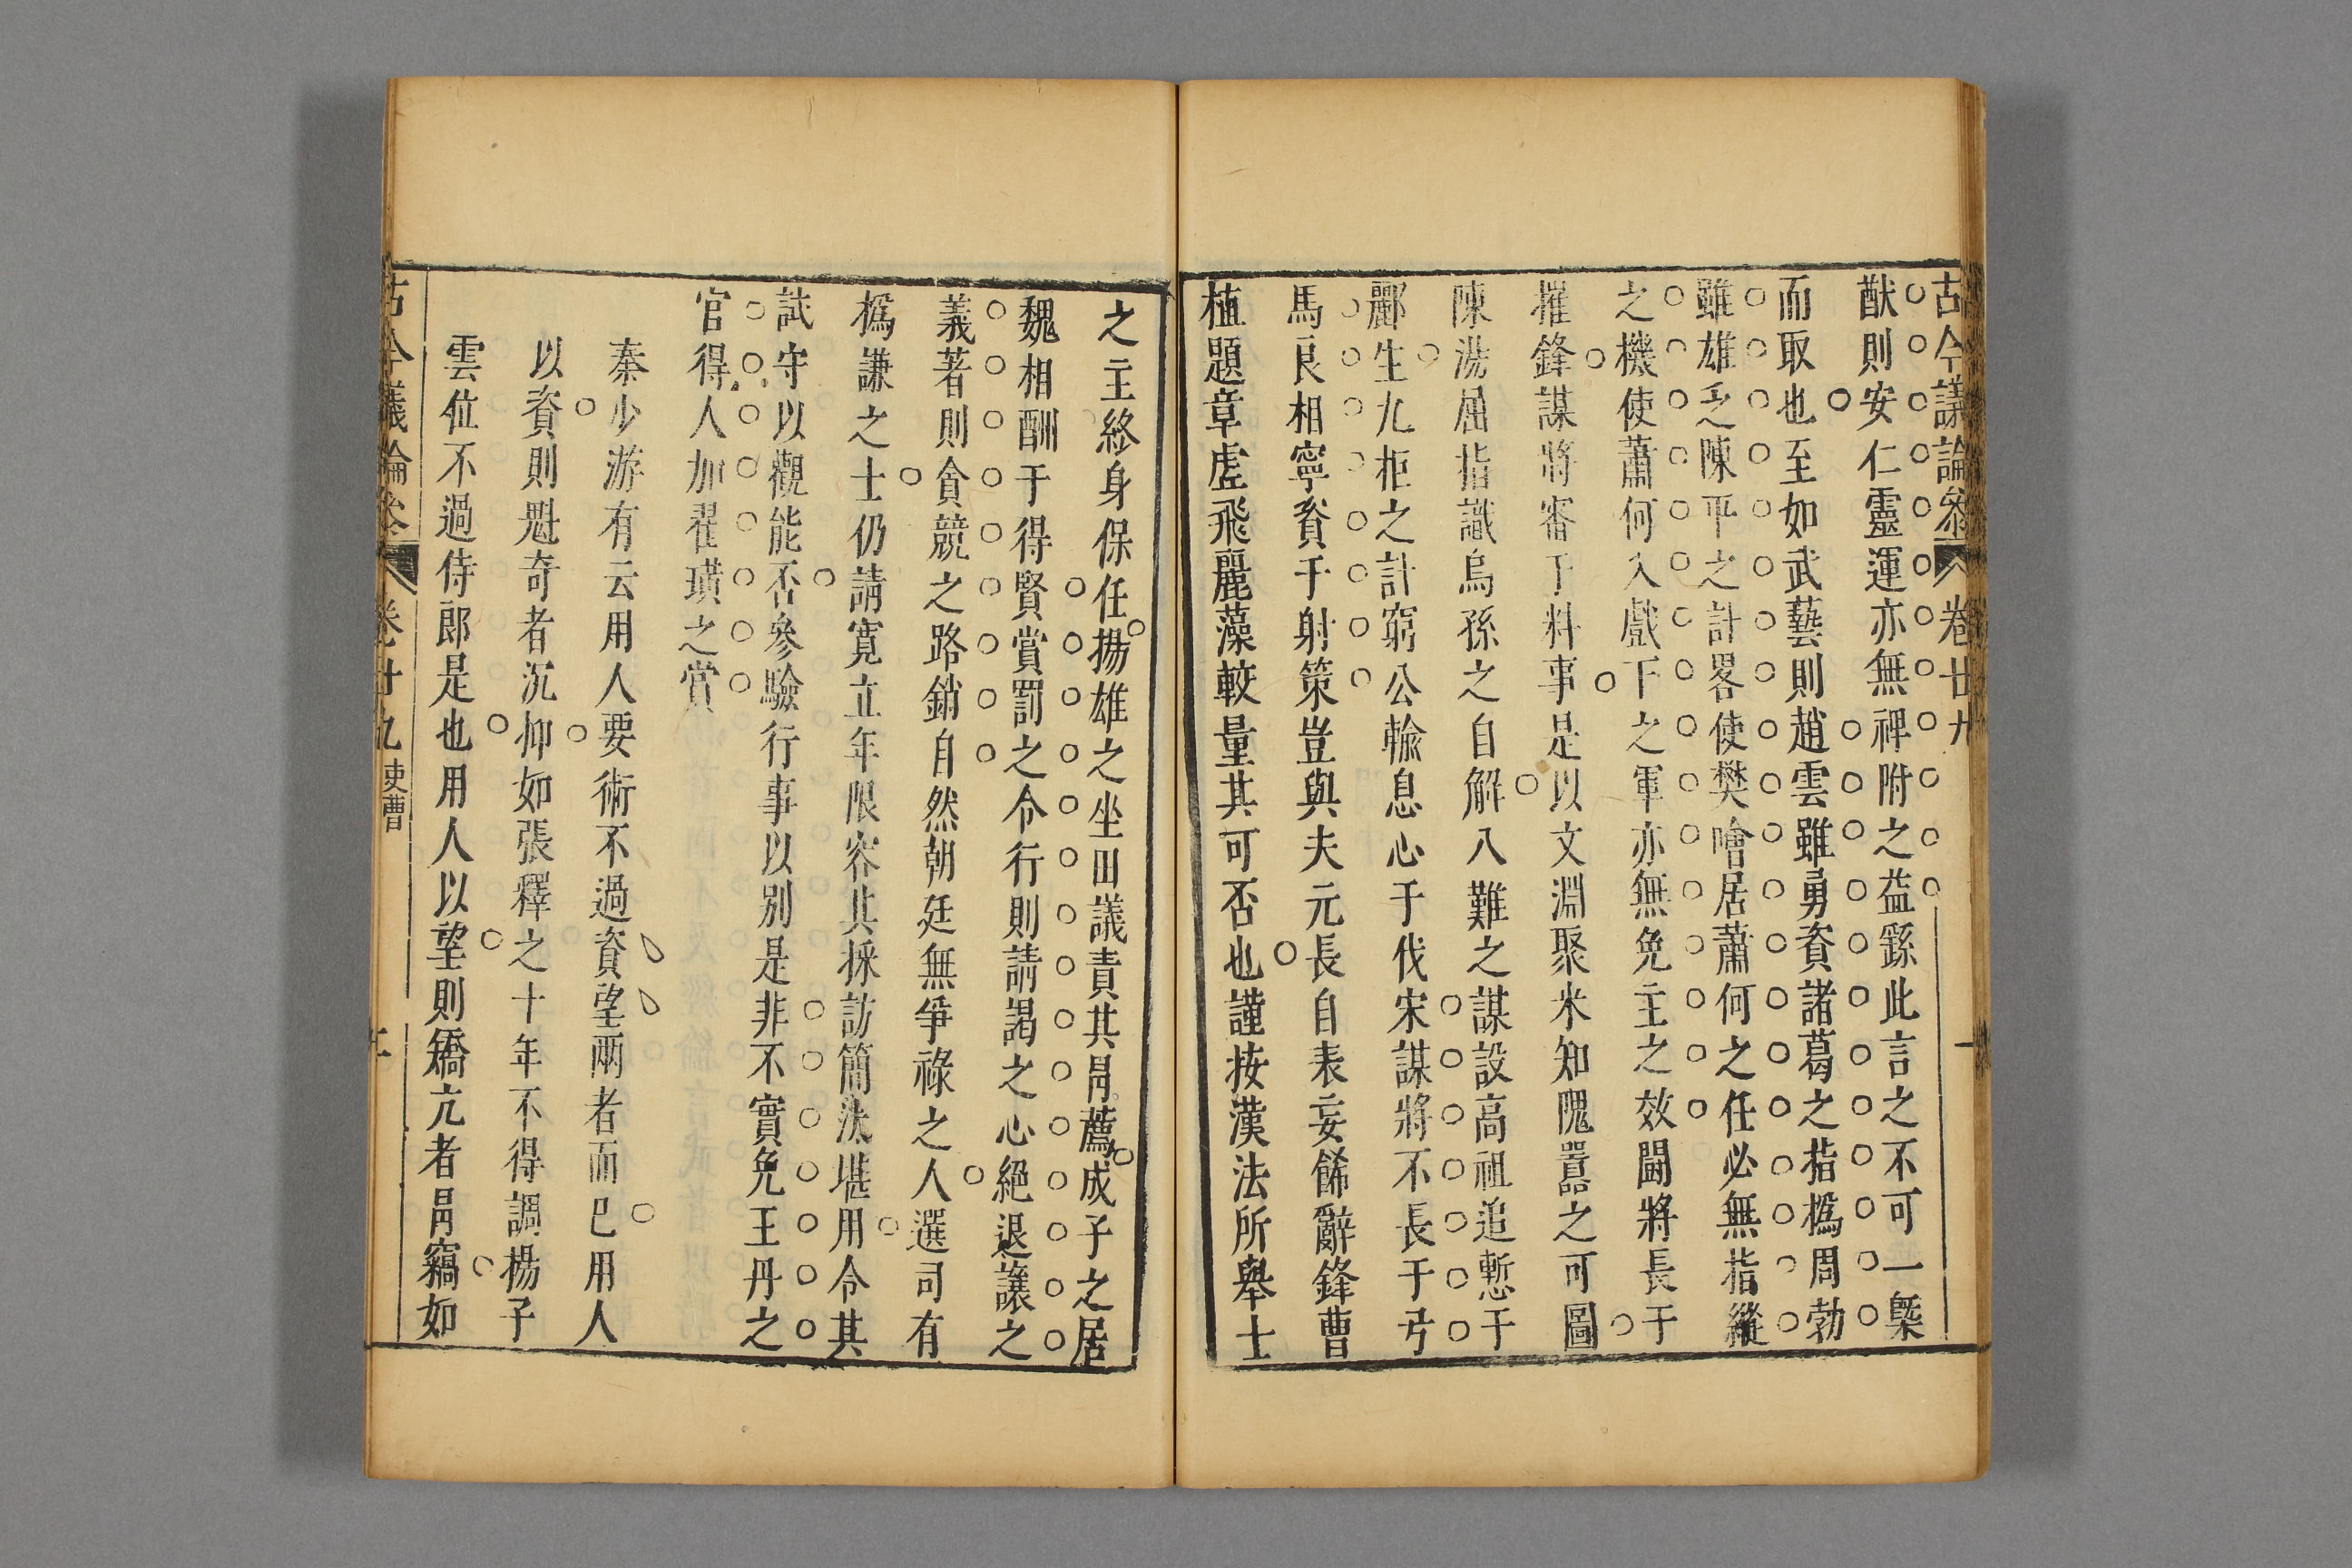 古今議論參 卷廿九
猷則安仁靈運亦無裨附之益繇此言之不可一槩
而取也至如武藝則趙雲雖勇資諸葛之指撝周勃
雖雄乏陳平之計畧使樊噲居蕭何之任必無指縱
之機使蕭何入戲下之軍亦無免主之效鬬將長于
摧鋒謀將審于料事是以文淵聚米知隗囂之可圖
陳湯屈指識烏孫之自解八難之謀設高祖追慙于
酈生九拒之計窮公輸息心于伐宋謀將不長于弓
馬良相寧資于射策豈與夫元長自表妄餙辭鋒曹
植題章虗飛麗藻較量其可否也謹按漢法所舉士
之主終身保任揚雄之坐田議責其冐薦成子之居
魏相酬于得賢賞罰之令行則請謁之心絕退讓之
義著則貪競之路銷自然朝廷無爭祿之人選司有
撝謙之士仍請寬立年限容其採訪簡汰堪用令其
試守以觀能否參驗行事以別是非不實免王丹之
官得人加翟璜之賞
秦少游有云用人要術不過資望兩者而已用人
以資則魁奇者沉抑如張釋之十年不得調楊子
雲位不過侍郎是也用人以望則矯亢者冐竊如
古今議論參 卷廿九 吏曹